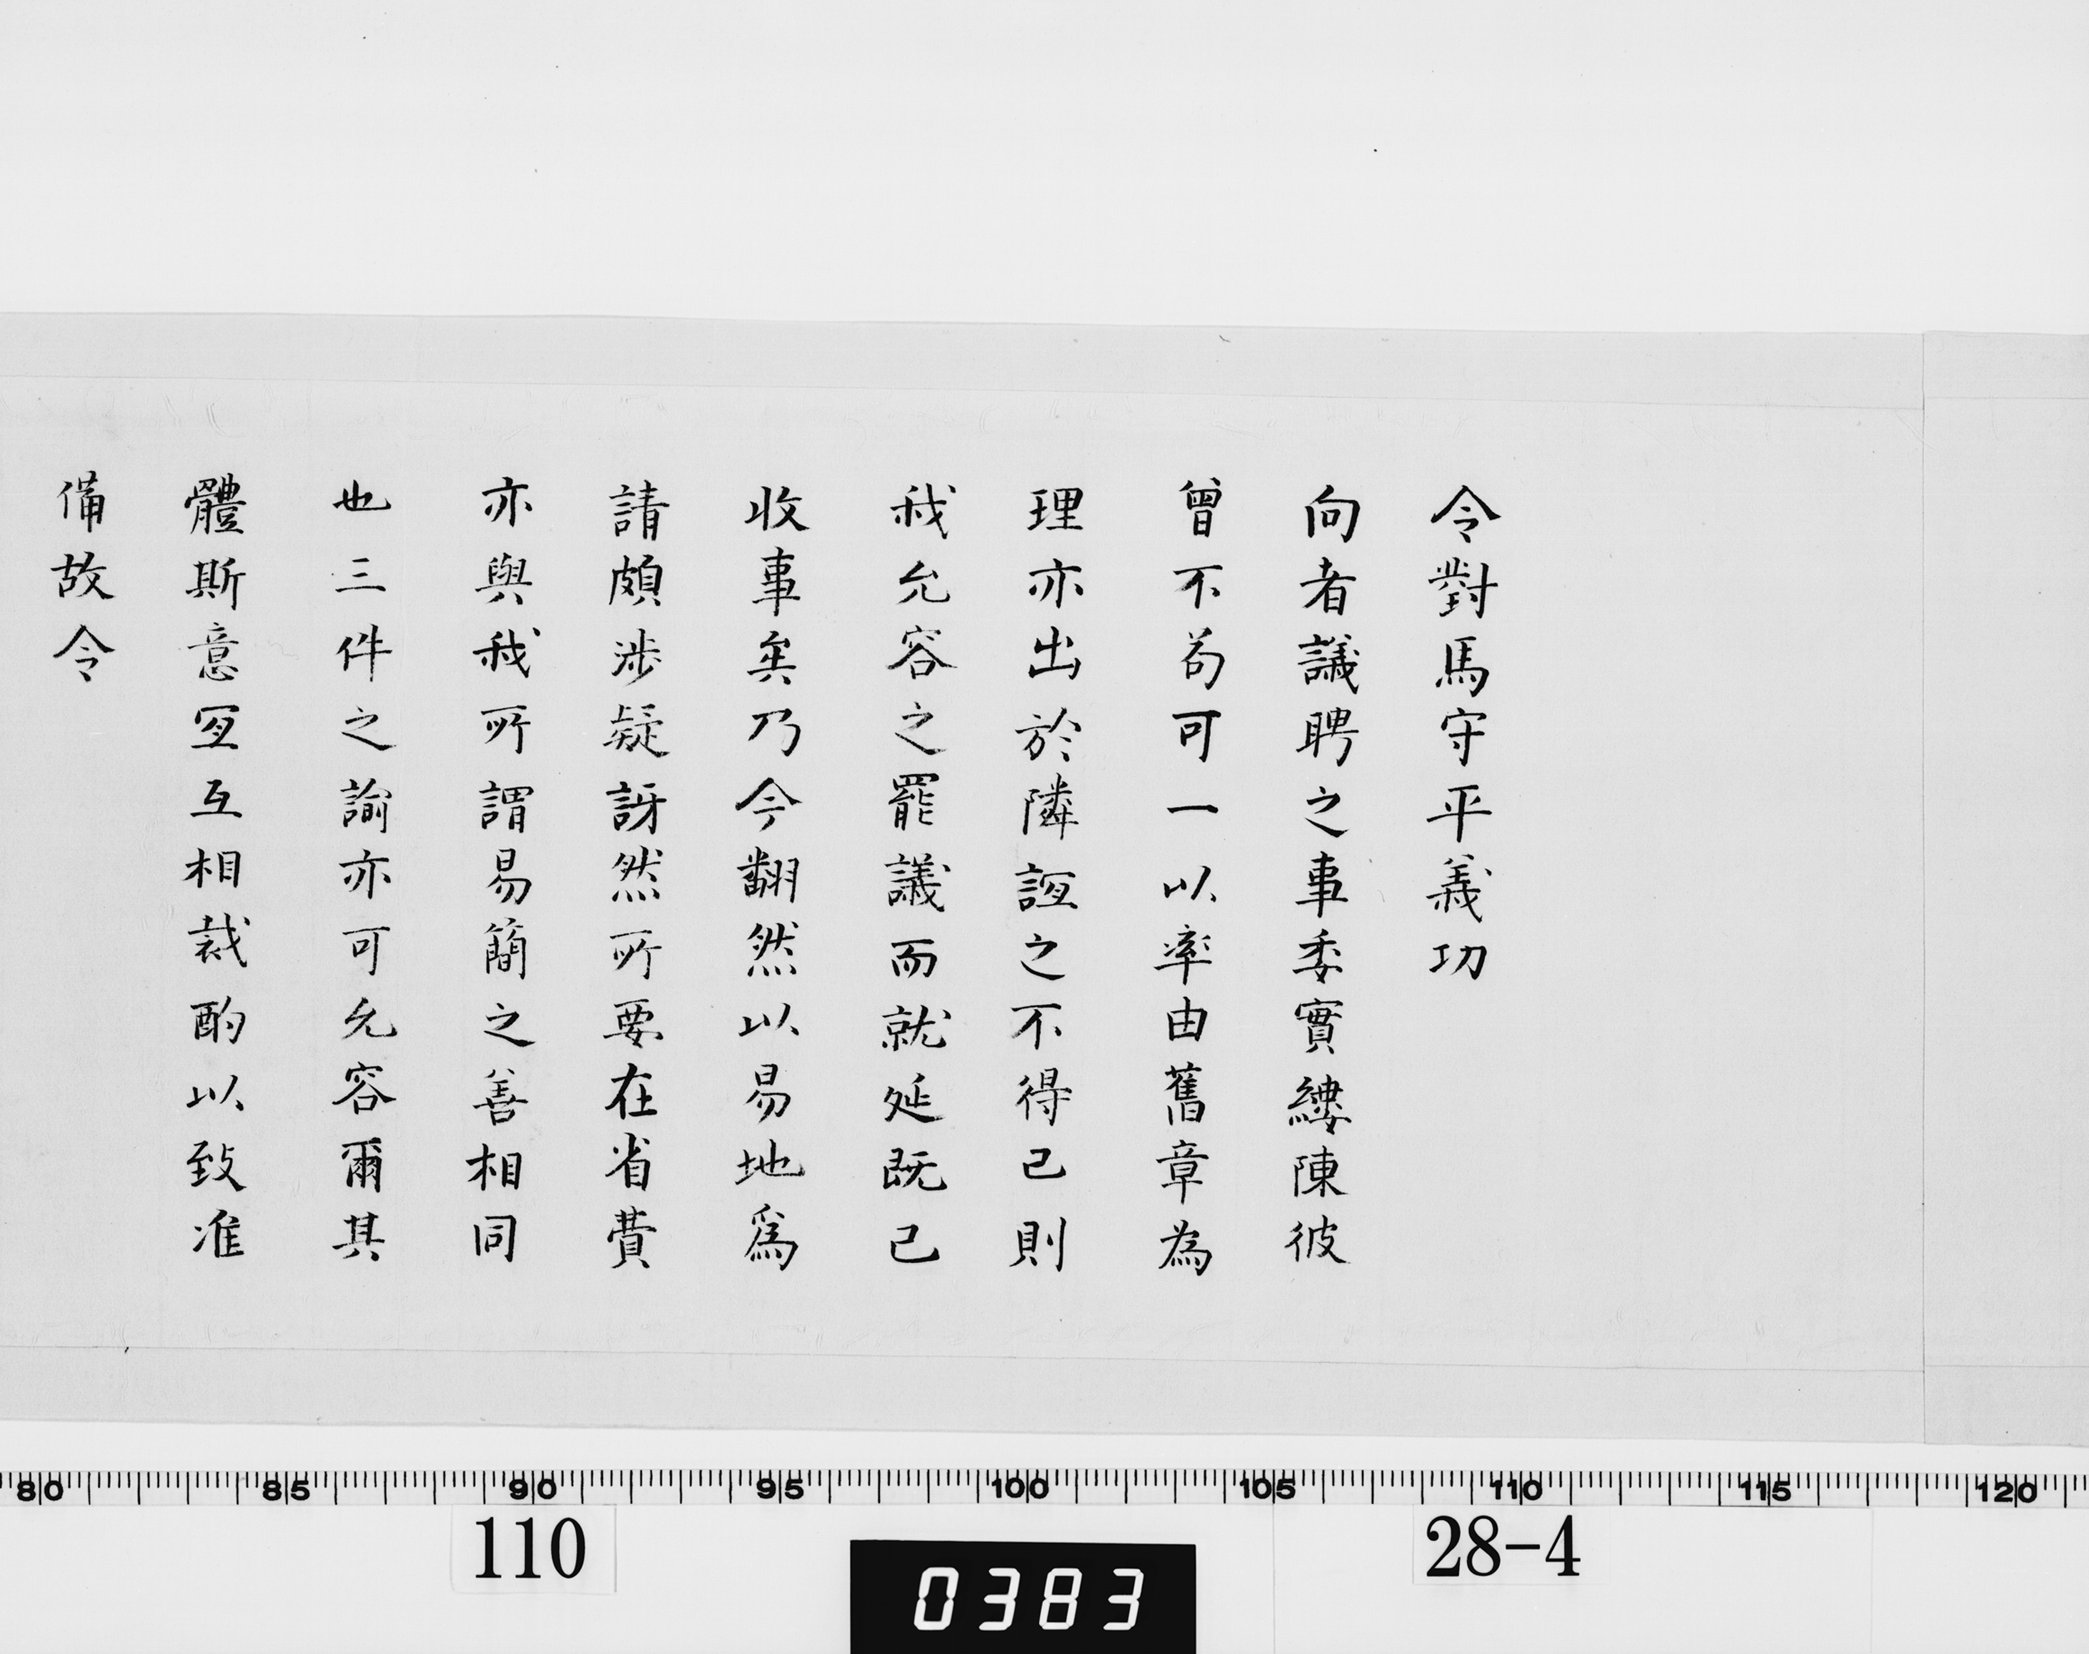 令對馬守平義功
向者議聘之事委實縷陳彼
曾不苟可一以率由舊章為
理亦出於隣誼之不得已則
我允容之罷議而就延既已
收事矣乃今翻然以易地爲
請頗涉疑訝然所要在省費
亦與我所謂易簡之善相同
也三件之諭亦可允容爾其
體斯意宜互相裁酌以致准
備故令
80 85 90 95 100 105 110 115 120
110
28-4
0383